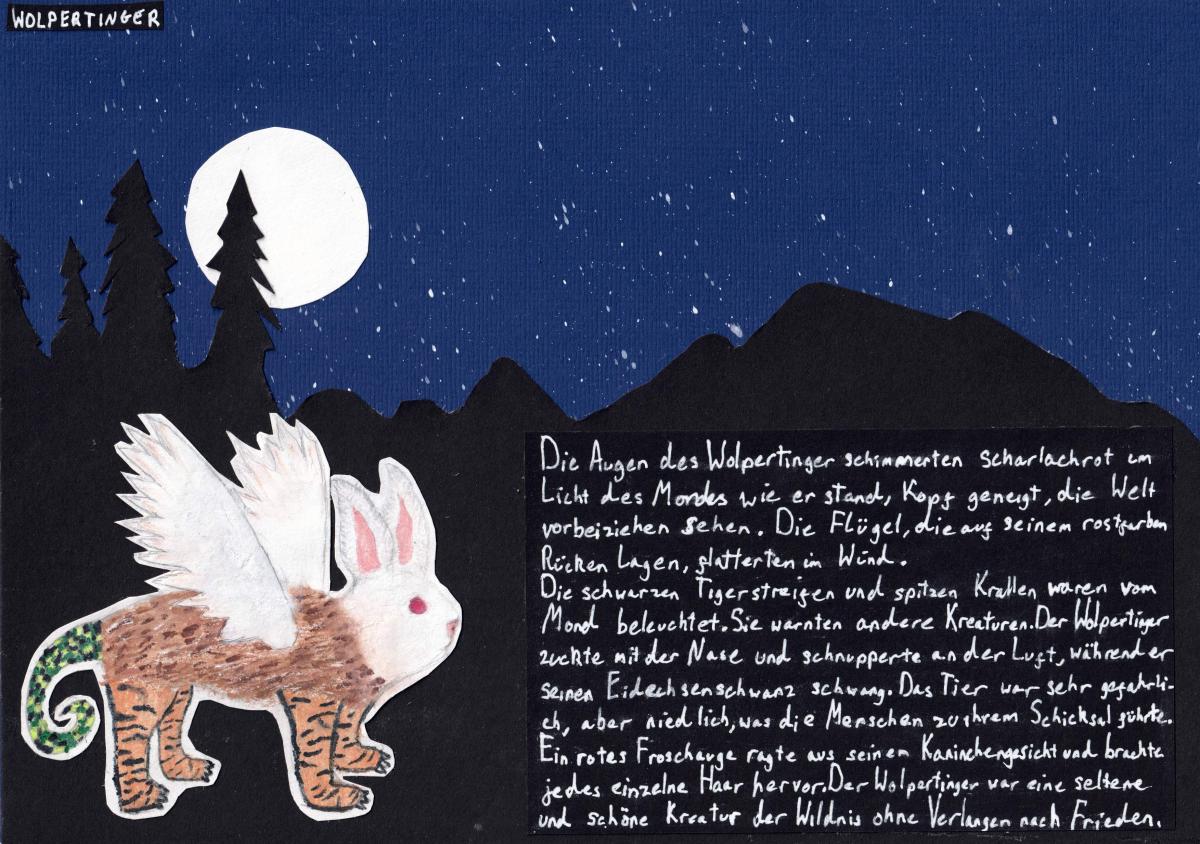 WOLPERTINGER
Die Augen des Wolpertinger schimmerten scharlachrot im
Licht des Mondes wie er stand, Kopf geneigt, die Welt
vorbeiziehen sehen. Die Flügel, die auf seinem rostfarben
Rücken Lagen, flatterten im Wind.
Die schwarzen Tigerstreifen und spitzen Krallen waren vom
Mond beleuchtet. Sie warnten andere Kreaturen. Der Wolpertinger
zuckte mit der Nase und schnupperte an der Luft, während er
seinen Eidechsenschwanz schwang. Das Tier war sehr gefährli-
ch, aber niedlich, was die Menschen zu ihrem Schicksal führte.
Ein rotes Froschauge ragte aus seinem Kaninchengesicht und brachte
jedes einzelne Haar hervor. Der Wolpertinger war eine seltene
und schöne Kreatur der Wildnis ohne Verlangen nach Frieden.